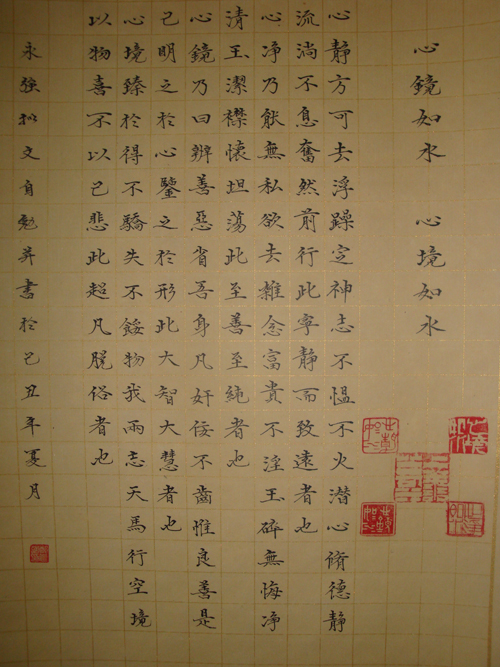 心鏡如水 心境如水
心靜方可去浮躁定神志不慍不火潛心脩德靜
流淌不息奮然前行此寧靜而致遠者也
心净乃能無私欲去雜念富貴不淫玉碎無悔净
清玉潔襟懷坦蕩此至善至純者也
心鏡乃曰辨善惡省吾身凡奸佞不齒惟良善是
己明之於心鑒之於形此大智大慧者也
心境臻於得不驕失不餒物我兩忘天馬行空境
以物喜不以己悲此超凡脫俗者也
永強文自勉并書於己丑年夏月